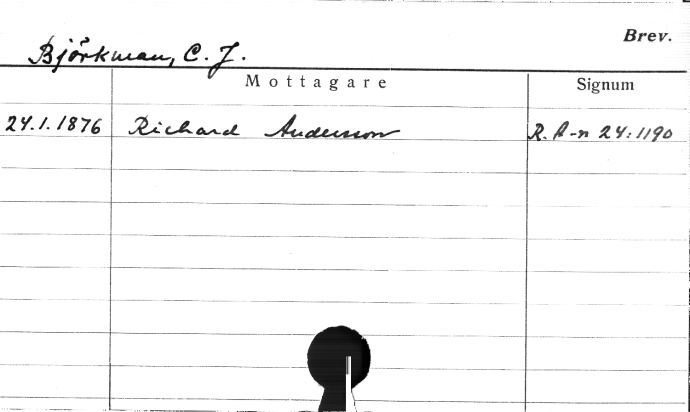 Brev.
Björkman, C. J.
Mottagare Signum
24.1.1876 Richard Andersson R. A-n 24:1190